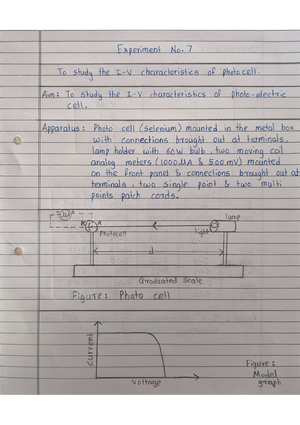 Experiment No. 7
To study the I-V characteristics of photocell.
Aim: To study the I-V characteristics of photo-electric
cell.
Apparatus: Photo cell (selenium) mounted in the metal box
with connections brought out at terminals,
lamp holder with 60W bulb, two moving coil
analog meters (1000μA & 500mV) mounted
on the front panel & connections brought out at
terminals, two single point & two multi
points patch cords.
lamp
K A
Photocell
light
d
Graduated Scale
Figure: Photo cell
Current
Voltage
Figure:
Model
graph